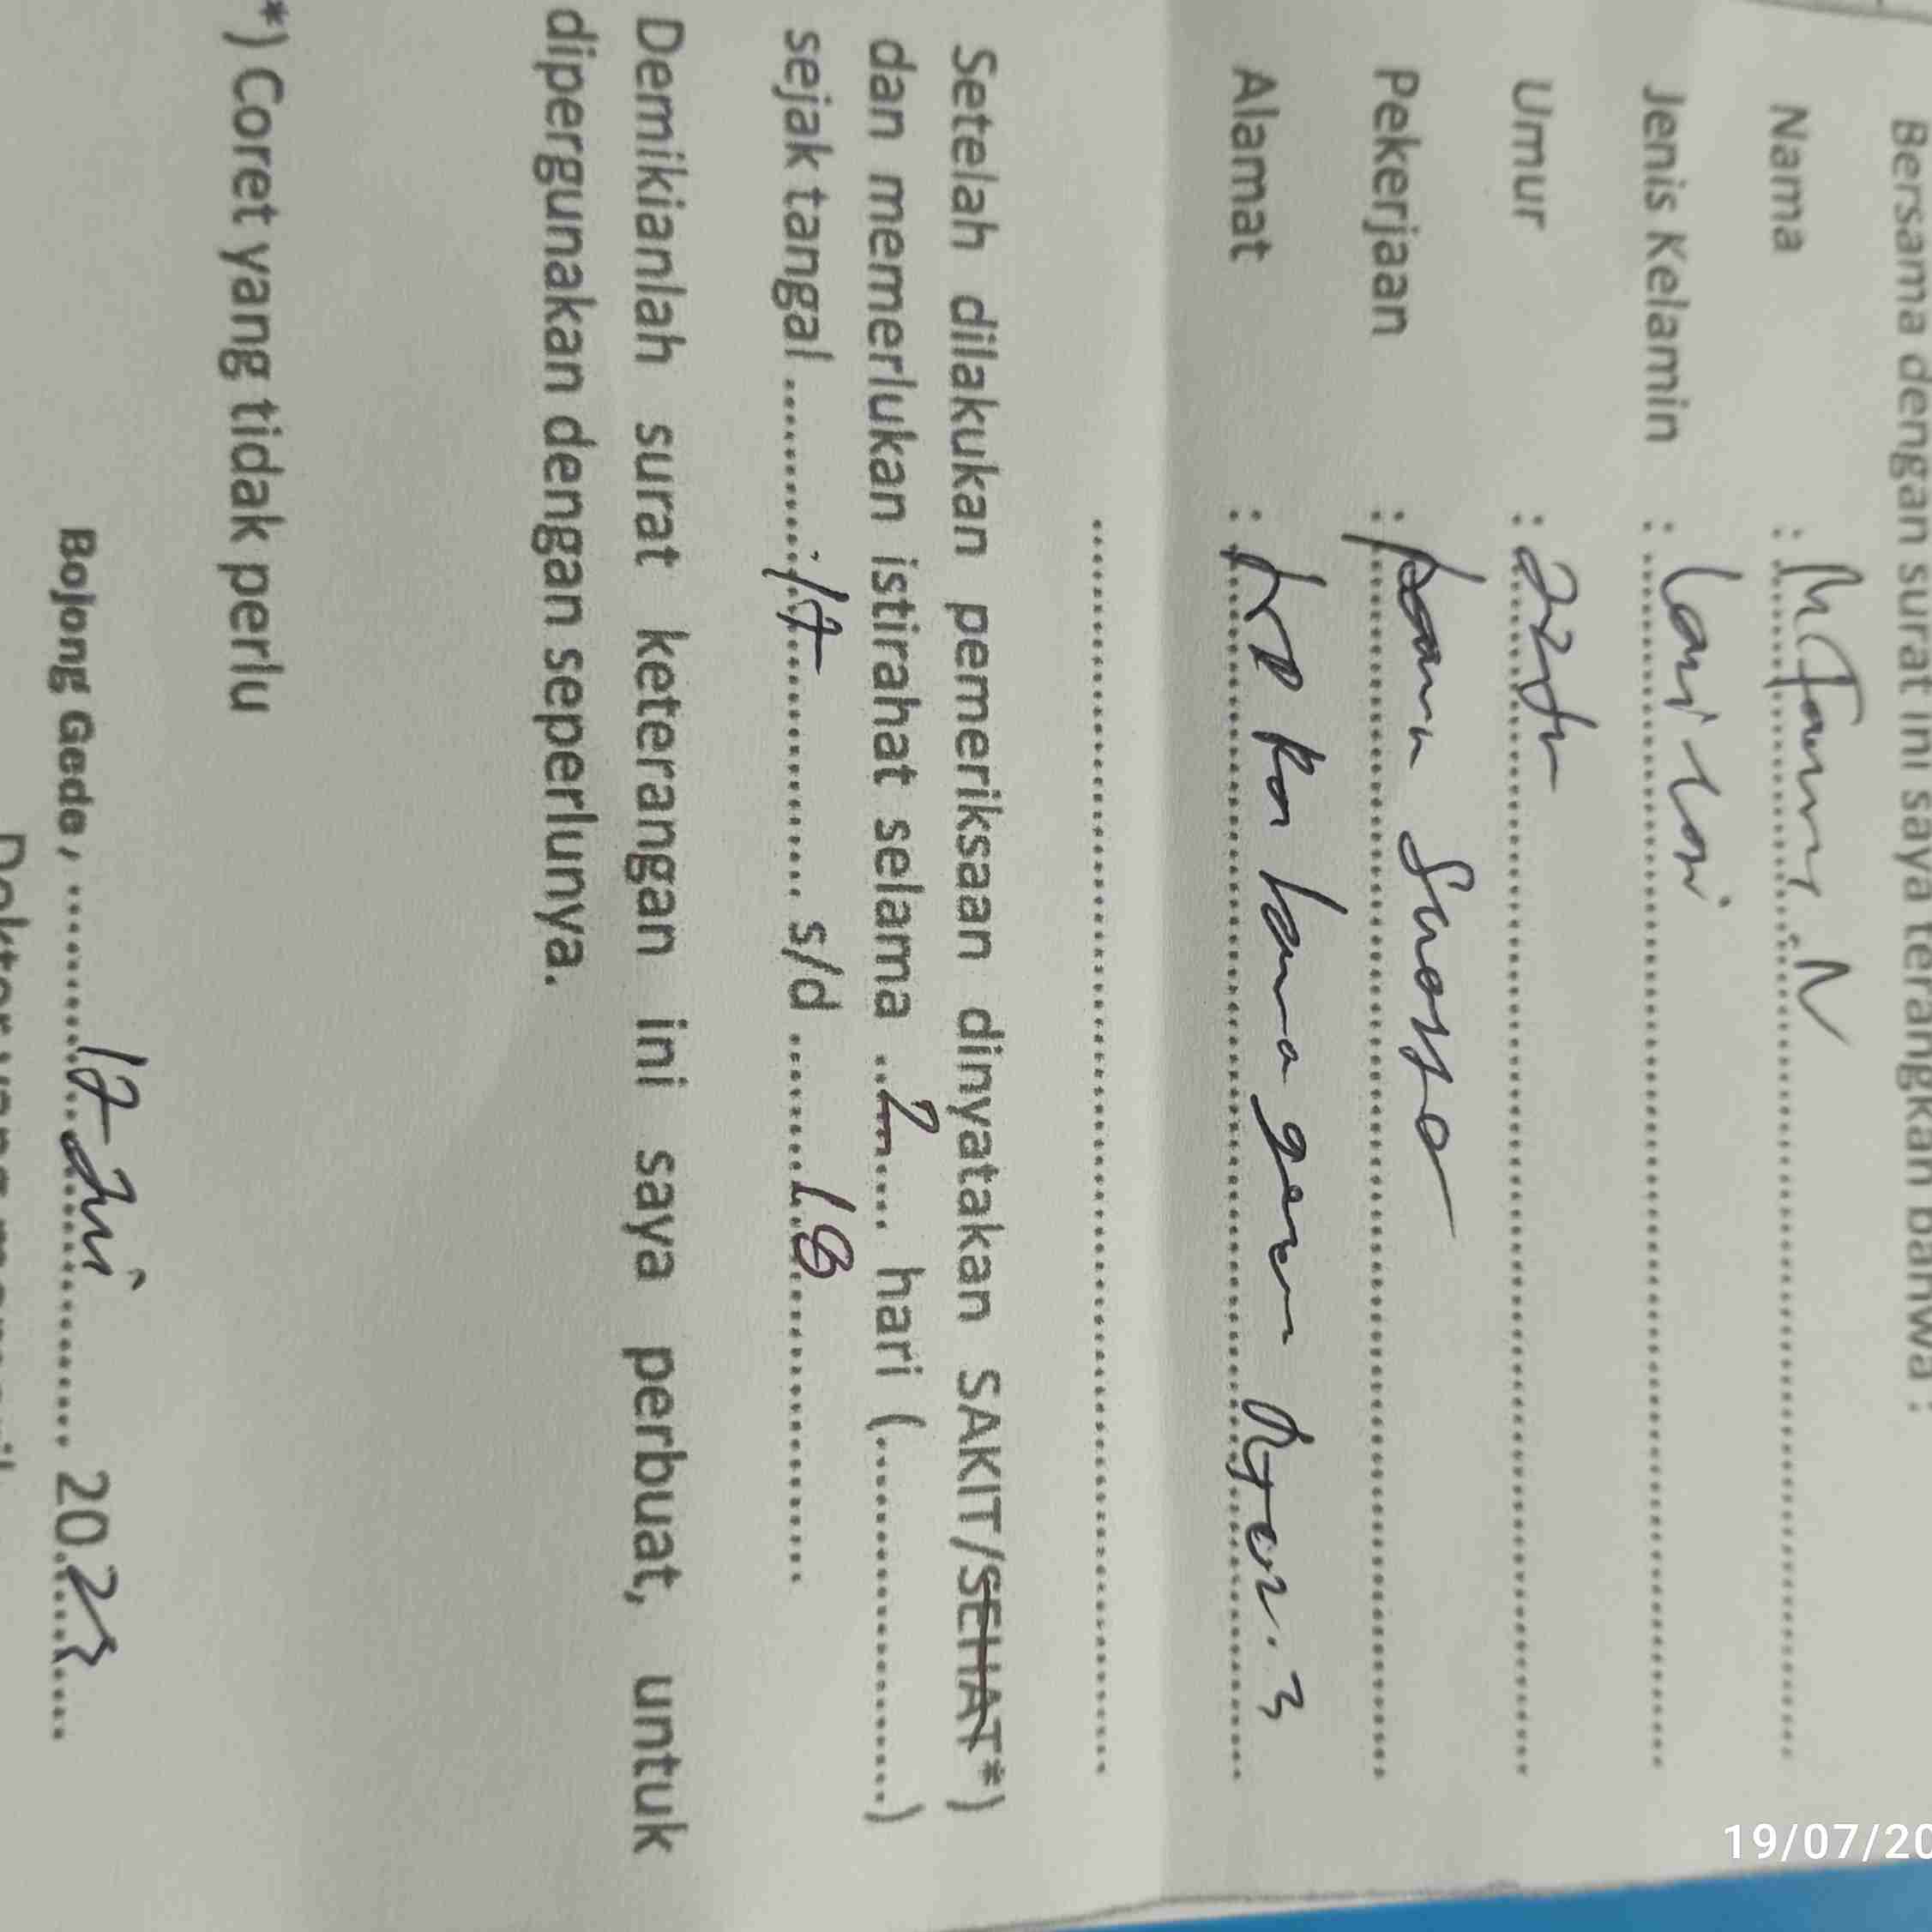 Bersama dengan surat ini saya terangkan bahwa :
Nama : M Fauzi . N
Jenis Kelamin : laki laki
Umur : 22th
Pekerjaan :
Alamat :
Setelah dilakukan pemeriksaan dinyatakan SAKIT/SEHAT*)
dan memerlukan istirahat selama 2 hari (....................)
sejak tangal 17 s/d 18
Demikianlah surat keterangan ini saya perbuat, untuk
dipergunakan dengan seperlunya.
*) Coret yang tidak perlu
Bojong Gede, 17 Juli 2023
19/07/20